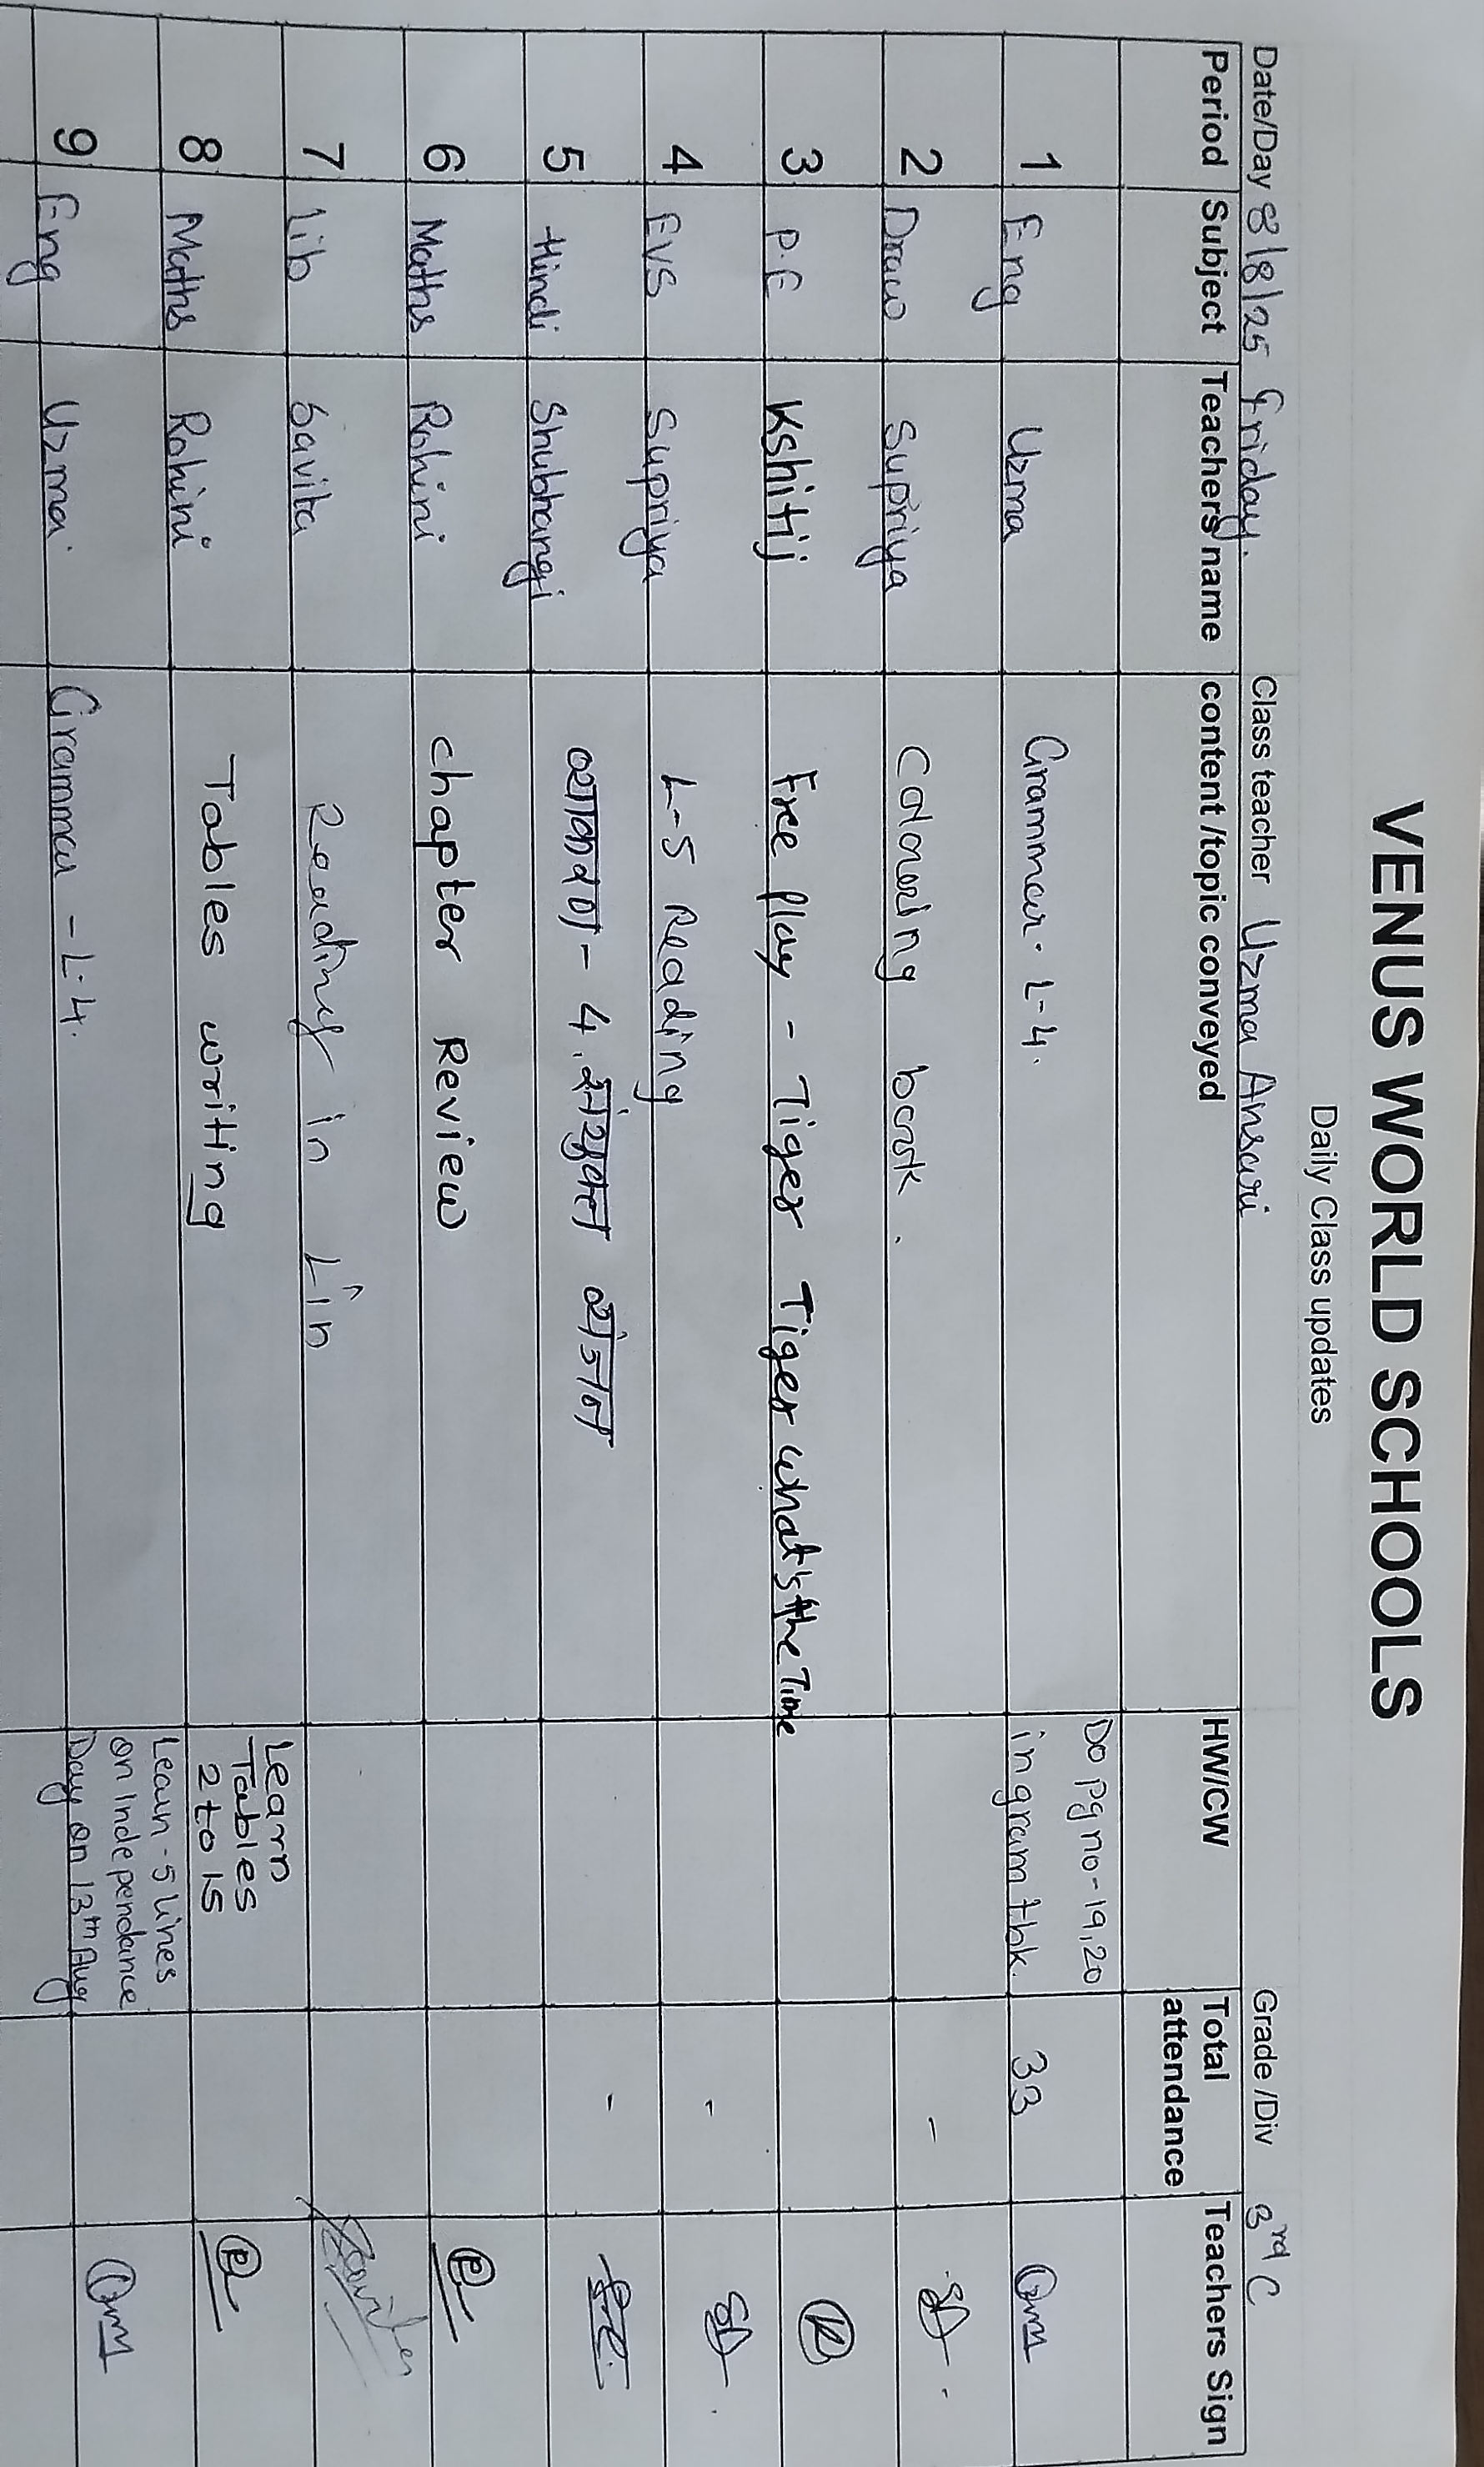 VENUS WORLD SCHOOLS
Daily Class updates
Date/Day 8/8/25 Friday. Class teacher Uzma Ansari Grade /Div 3rd C
Period Subject Teachers name content /topic conveyed HW/CW Total attendance Teachers Sign
1 Eng Uzma Grammar - L-4. Do pg no - 19, 20 in gram tbk. 33
2 Draw Supriya Colouring book. -
3 P.E Kshitij Free play - Tiger Tiger what's the Time
4 EVS Supriya L-5 Reading -
5 Hindi Shubhangi व्याकरण - 4. संयुक्त व्यंजन -
6 Maths Rohini chapter Review
7 Lib Savita Reading in Lin
8 Maths Rohini Tables writing Learn Tables 2 to 15
9 Eng Uzma Grammar - L-4. Learn - 5 lines on Independance Day on 13th Aug